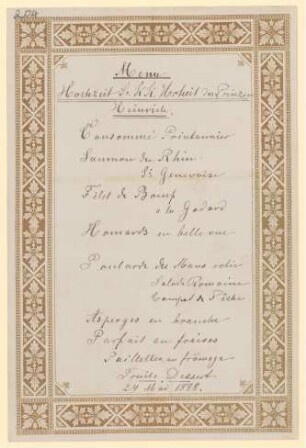 Menu
Hochzeit Sr. K.K. Hoheit des Prinzen
Heinrich.
Consommé Printanier
Saumon du Rhin
Sc Genevoise
Filet de Boeuf
a la Godard
Homards en belle vue
Poularde du Mans rotie
Salade Romaine
Compot de Pêche
Asperges en branche
Parfait en fraises
Paillettes en fromage
Fruits Dessert
24 Mai 1888.